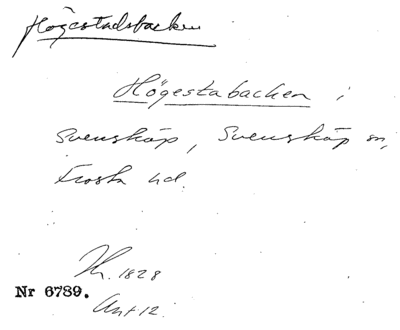 Högestadsbacken
Högestabacken i
Svensköp, Svensköp sn,
Frosta hd.
Th. 1828
Nr 6789.
Ant 12.